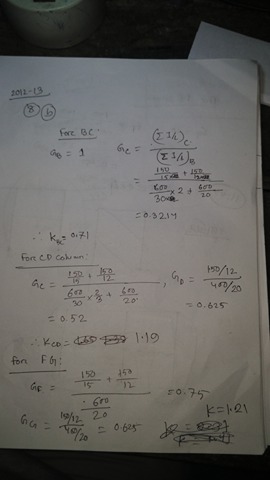 2012-13
8 b
For BC:
G_B = 1
G_C = (Σ I/L)_C / (Σ I/L)_B
= (150/15 + 150/12) / (600/30 × 2 + 600/20)
= 0.3214
∴ K_BC = 0.71
For CD Column:
G_C = (150/15 + 150/12) / (600/30 × 2/3 + 600/20), G_D = (150/12) / (400/20)
= 0.52
= 0.625
∴ K_CD = 1.19
For FG:
G_F = (150/15 + 150/12) / (600/20) = 0.75
G_G = (150/12) / (400/20) = 0.625
K = 1.21